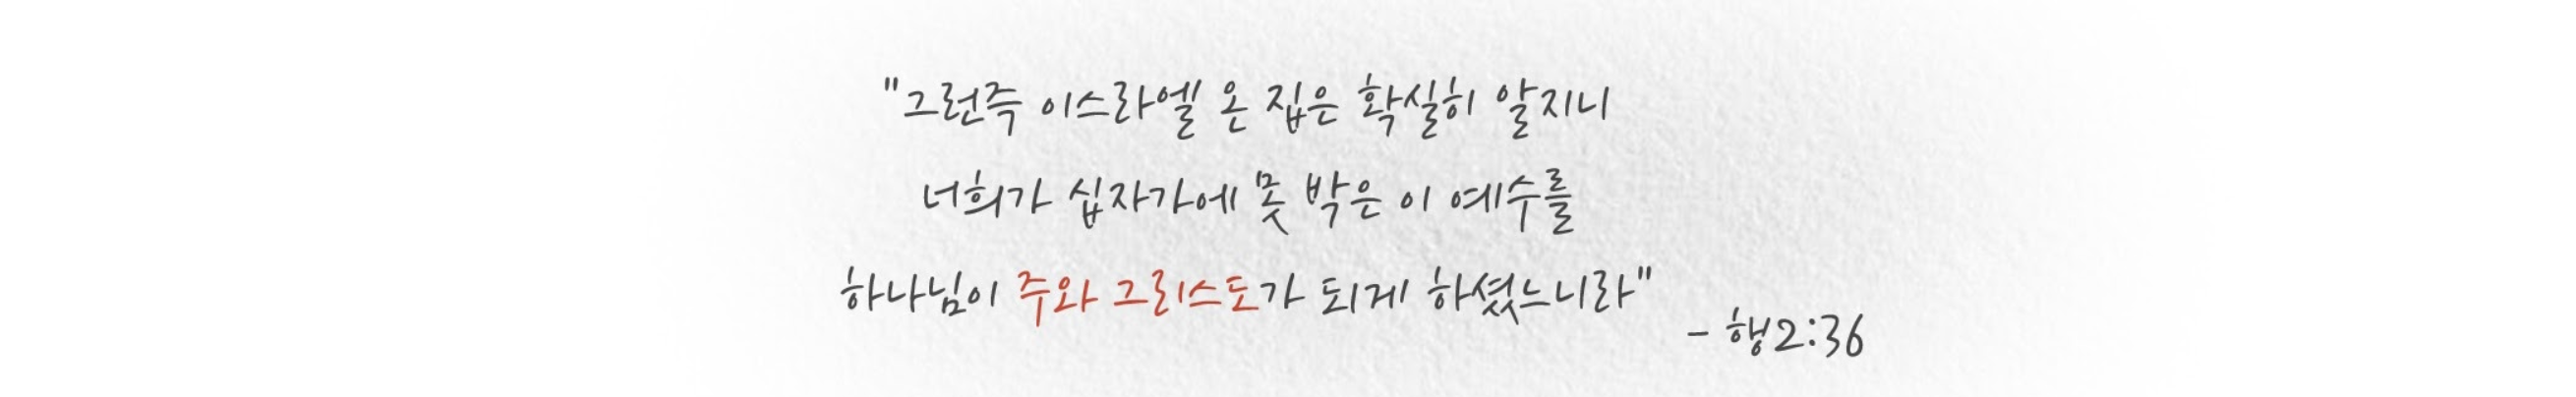 "그런즉 이스라엘 온 집은 확실히 알지니
너희가 십자가에 못 박은 이 예수를
하나님이 주와 그리스도가 되게 하셨느니라"
- 행2:36